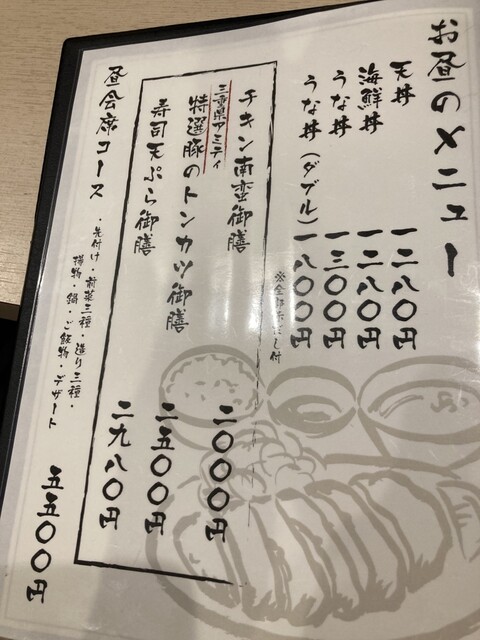 お昼のメニュー
天丼 一二八〇円
海鮮丼 一二八〇円
うな丼 一三〇〇円
うな丼(ダブル) 一八〇〇円
※全部赤だし付
チキン南蛮御膳 二〇〇〇円
三重県アミティ
特選豚のトンカツ御膳 二五〇〇円
寿司天ぷら御膳 二九八〇円
昼会席コース 五五〇〇円
・先付け・前菜三種・造り三種・
揚物・鍋・ご飯物・デザート